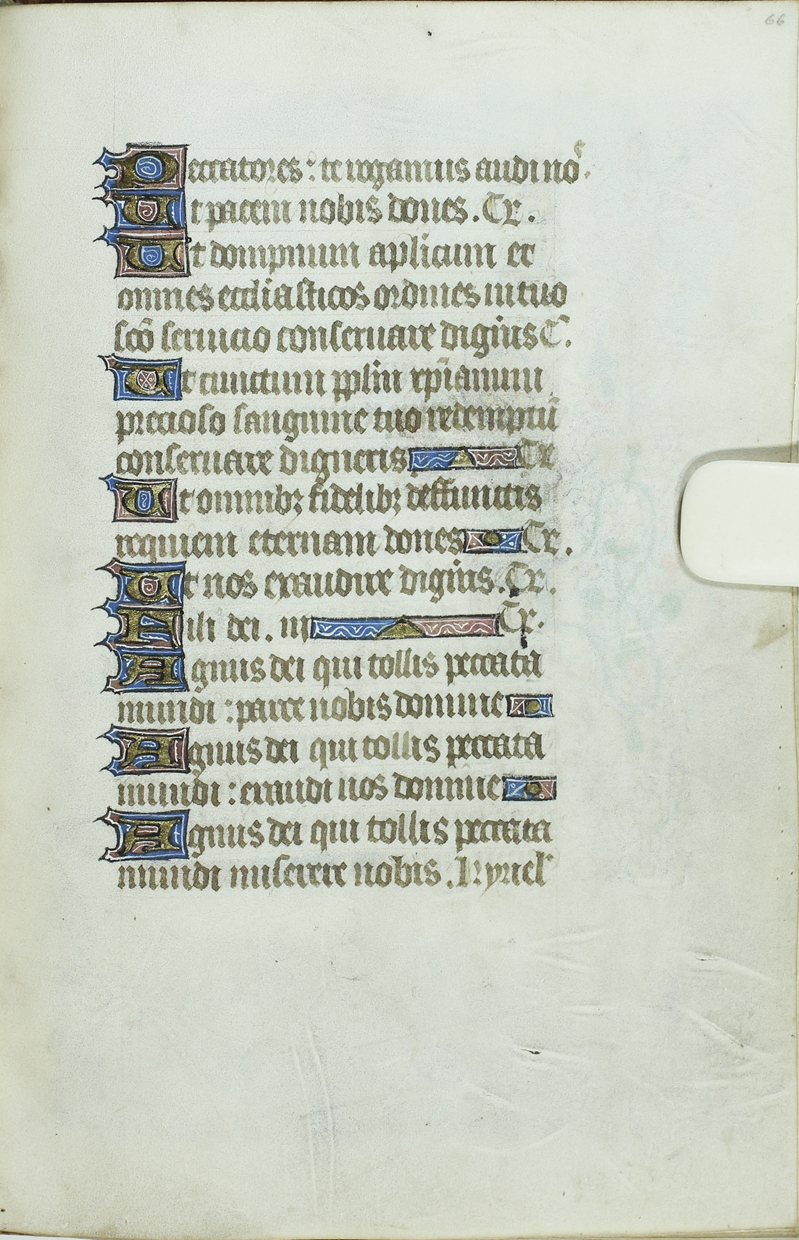 66
Peccatores : te rogamus audi no᷒.
Ut pacem nobis dones . Te r̃.
Ut dompnum aplicum et
omnes eccliasticos ordines in tuo
sc̃o seruicio conseruare dig̃is T̃.
Ut cunctum pplm xp̃ianum
precioso sanguine tuo redemptũ
conseruare digneris Te
Ut omnibꝫ fidelibꝫ deffunctis
requiem eternam dones Te r̃.
Ut nos exaudire dig̃is . Te r̃.
Fili dei . iii Te r̃.
Agnus dei qui tollis peccata
mundi : parce nobis domine
Agnus dei qui tollis peccata
mundi : exaudi nos domine
Agnus dei qui tollis peccata
mundi miserere nobis . Kyriel̃